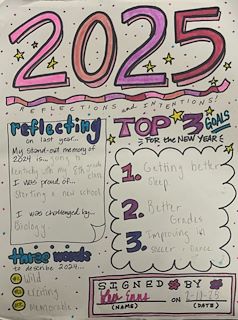 2025
REFLECTIONS and INTENTIONS!
reflecting
on last year...
My stand-out memory of
2024 is... going to
Kentucky with my 8th grade
class
I was proud of...
Starting a new school
I was challenged by...
Biology.
three words
to describe 2024...
#1 Wild
#2 Exciting
#3 Memorable
TOP 3 GOALS
For the NEW YEAR
1. Getting better
Sleep
2. Better
Grades
3. Improving in
Soccer + Dance
SIGNED
ON 2-11-25
(NAME) (DATE)